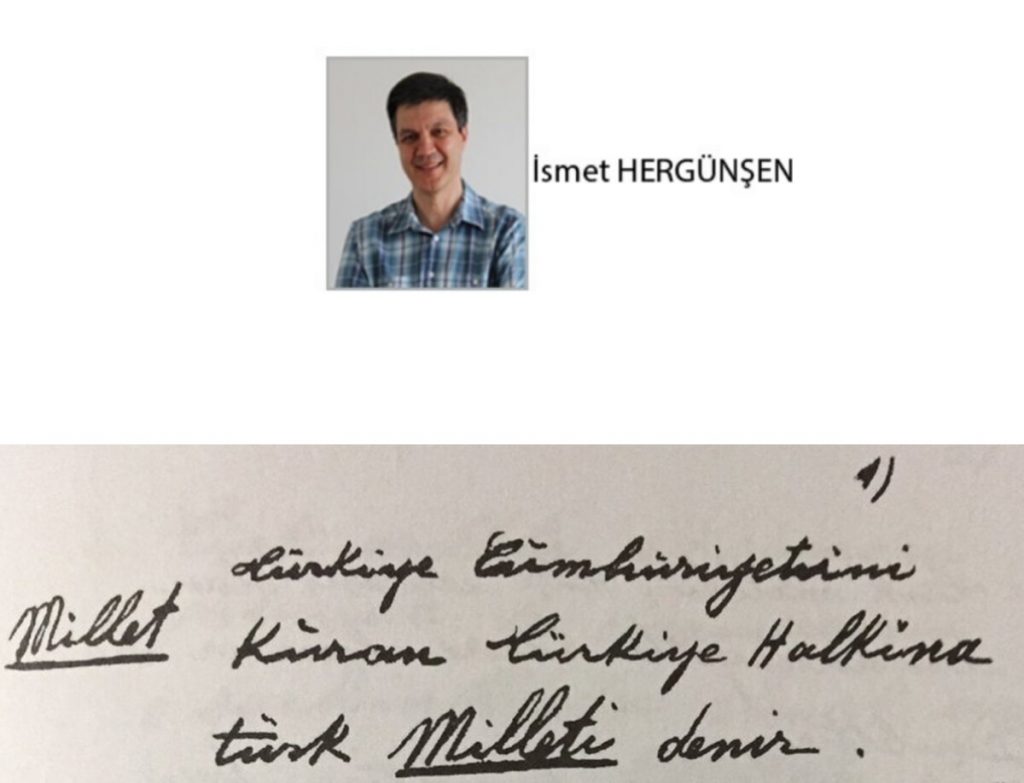 İsmet HERGÜNŞEN
1)
Türkiye Cümhuriyetini
Millet Kuran Türkiye Halkına
türk Milleti denir .